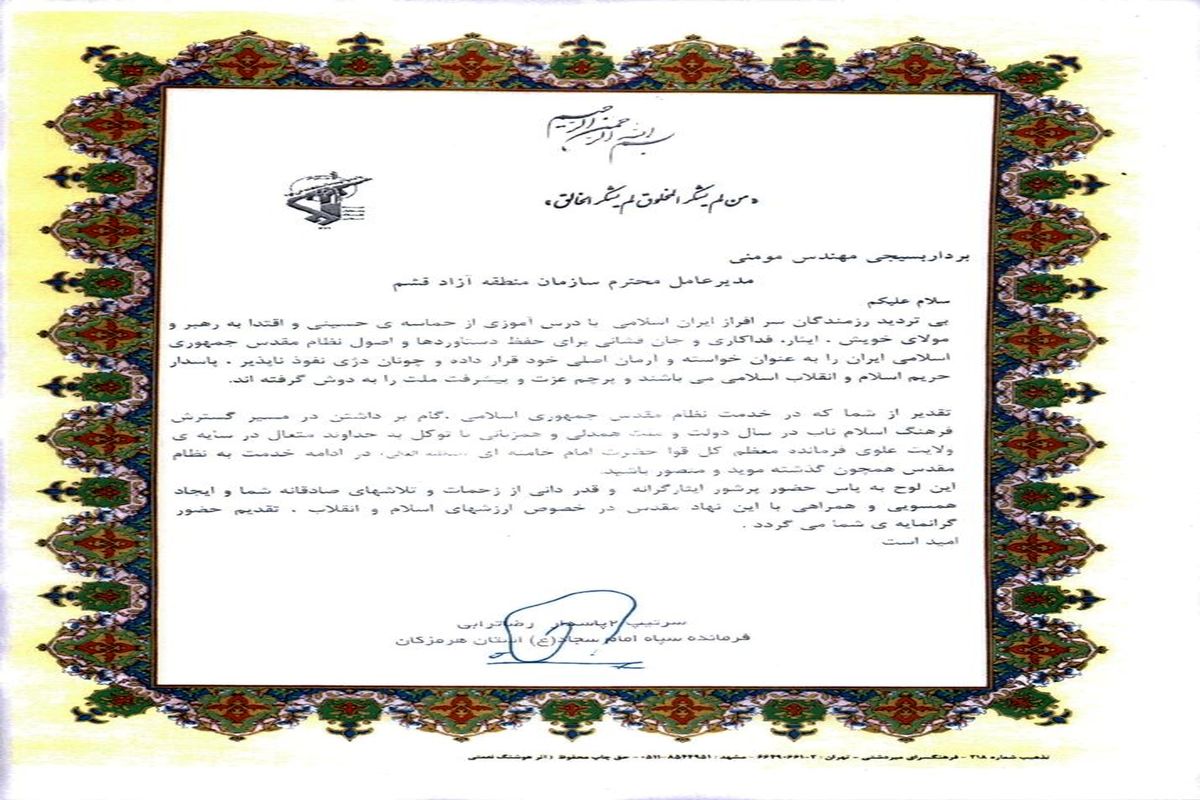 بسم الله الرحمن الرحیم
«من لم یشکر المخلوق لم یشکر الخالق»
برداربسیجی مهندس مومنی
مدیرعامل محترم سازمان منطقه آزاد قشم
سلام علیکم
بی تردید رزمندگان سر افراز ایران اسلامی با درس آموزی از حماسه ی حسینی و اقتدا به رهبر و
مولای خویش ، ایثار، فداکاری و جان فشانی برای حفظ دستاوردها و اصول نظام مقدس جمهوری
اسلامی ایران را به عنوان خواسته و ارمان اصلی خود قرار داده و چونان دژی نفوذ ناپذیر ، پاسدار
حریم اسلام و انقلاب اسلامی می باشند و پرچم عزت و پیشرفت ملت را به دوش گرفته اند.
تقدیر از شما که در خدمت نظام مقدس جمهوری اسلامی ،گام بر داشتن در مسیر گسترش
فرهنگ اسلام ناب در سال دولت و ملت همدلی و همزبانی با توکل به خداوند متعال در سایه ی
ولایت علوی فرمانده معظم کل قوا حضرت امام خامنه ای در ادامه خدمت به نظام
مقدس همچون گذشته موید و منصور باشید.
این لوح به پاس حضور پرشور ایثارگرانه و قدر دانی از زحمات و تلاشهای صادقانه شما و ایجاد
همسویی و همراهی با این نهاد مقدس در خصوص ارزشهای اسلام و انقلاب ، تقدیم حضور
گرانمایه ی شما می گردد .
امید است
سرتیپ ۲پاسدار رضاترابی
فرمانده سپاه امام سجاد(ع) استان هرمزگان
تذهیب شماره ۳۱۸ - فرهنگسرای میردشتی - تهران : ۳-۶۶۴۹۰۶۶۱ - مشهد : ۸۵۴۴۹۵۱-۰۵۱۱ - حق چاپ محفوظ (اثر هوشنگ نعمتی